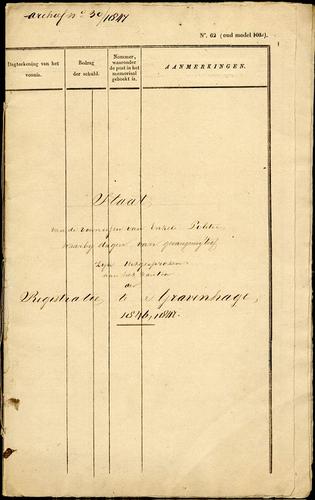 Archief nº 30/1847
Nº. 62 (oud model 103c).
Dagteekening van het vonnis.
Bedrag der schuld.
Nommer, waaronder de post in het memoriaal geboekt is.
AANMERKINGEN.
Staat,
van de vonnissen van Politie,
waarbij dagen van gevangenis
zijn uitgesproken
aan het Kantoor
der
Registratie, te s Gravenhage,
1846, 1847.